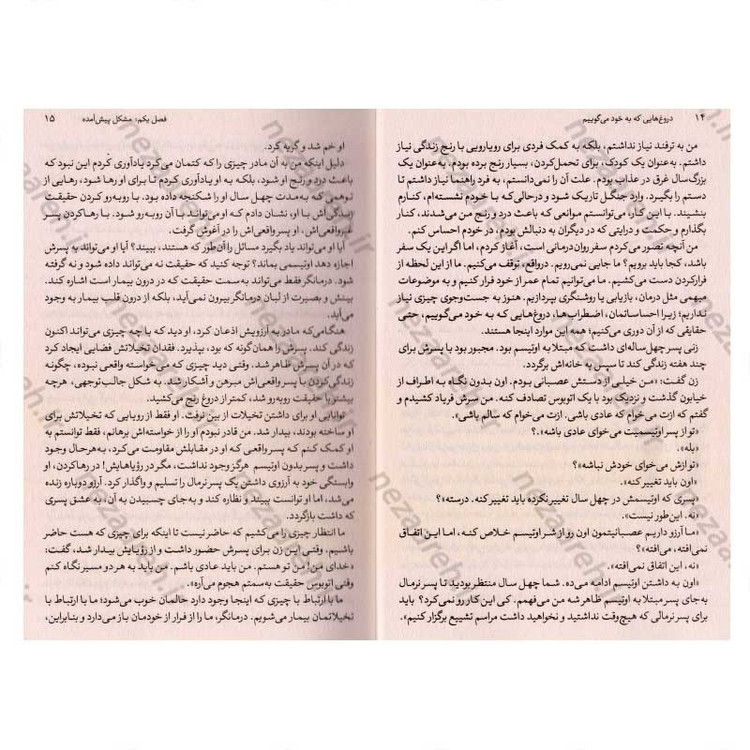 ۱۴ دروغ‌هایی که به خود می‌گوییم
من به ترفند نیاز نداشتم، بلکه به کمک فردی برای رویارویی با رنج زندگی نیاز
داشتم. به‌عنوان یک کودک، برای تحمل‌کردن، بسیار رنج برده بودم. به‌عنوان یک
بزرگ‌سال غرق در عذاب بودم. علت آن را نمی‌دانستم، به فرد راهنما نیاز داشتم تا
دستم را بگیرد. وارد جنگل تاریک شود و درحالی‌که با خودم نشسته‌ام، کنارم
بنشیند. با این کار، می‌توانستم موانعی که باعث درد و رنج من می‌شدند، کنار
بگذارم و حکمت و درایتی که در دیگران به دنبالش بودم، در خودم احساس کنم.
من آنچه تصور می‌کردم سفر روان‌درمانی است، آغاز کردم، اما اگر این یک سفر
باشد، کجا باید برویم؟ ما جایی نمی‌رویم. درواقع، توقف می‌کنیم. ما از این لحظه از
فرارکردن دست می‌کشیم. ما می‌توانیم تمام عمر از خود فرار کنیم و به موضوعات
مهمی مثل درمان، بازیابی یا روشنگری بپردازیم. هنوز به جست‌وجوی چیزی نیاز
نداریم؛ زیرا احساساتمان، اضطراب‌ها، دروغ‌هایی که به خود می‌گوییم، حتی
حقایقی که از آن دوری می‌کنیم؛ همه این موارد اینجا هستند.
زنی پسر چهل‌ساله‌ای داشت که مبتلا به اوتیسم بود. مجبور بود با پسرش برای
چند هفته زندگی کند تا سپس به خانه‌اش برگردد.
زن گفت: «من خیلی از دستش عصبانی بودم. اون بدون نگاه به اطراف از
خیابون گذشت و نزدیک بود با یک اتوبوس تصادف کنه. من سرش فریاد کشیدم و
گفتم که ازت می‌خوام که عادی باشی. ازت می‌خوام که سالم باشی».
«تو از پسر اوتیسمیت می‌خوای عادی باشه»؟
«بله».
«تو ازش می‌خوای خودش نباشه»؟
«اون باید تغییر کنه».
«پسری که اوتیسمش در چهل سال تغییر نکرده باید تغییر کنه. درسته»؟
«نه. این‌طور نیست».
«ما آرزو داریم عصبانیتمون اون رو از شر اوتیسم خلاص کنه، اما این اتفاق
نمی‌افته، می‌افته»؟
«نه، این اتفاق نمی‌افته».
«اون به داشتن اوتیسم ادامه می‌ده. شما چهل سال منتظر بودید تا پسر نرمال
به‌جای پسر مبتلا به اوتیسم ظاهر شه من می‌فهمم. کی این کار رو نمی‌کرد؟ باید
برای پسر نرمالی که هیچ‌وقت نداشتید و نخواهید داشت مراسم تشییع برگزار کنیم».
فصل یکم: مشکل پیش‌آمده ۱۵
او خم شد و گریه کرد.
دلیل اینکه من به آن مادر چیزی را که کتمان می‌کرد یادآوری کردم این نبود که
باعث درد و رنج او شود، بلکه به او یادآوری کردم تا برای او رها شود، رهایی از
توهمی که به‌مدت چهل سال او را شکنجه داده بود. با روبه‌رو کردن حقیقت
زندگی‌اش با او، نشان دادم که او می‌تواند با آن روبه‌رو شود. با رها کردن پسر
غیرواقعی‌اش، او پسر واقعی‌اش را در آغوش گرفت.
آیا او می‌تواند یاد بگیرد مسائل را آن‌طور که هستند، ببیند؟ آیا او می‌تواند به پسرش
اجازه دهد اوتیسمی بماند؟ توجه کنید که حقیقت نه می‌تواند داده شود و نه گرفته
شود. درمانگر فقط می‌تواند به سمت حقیقت که در درون بیمار است اشاره کند.
بینش و بصیرت از لبان درمانگر بیرون نمی‌آید، بلکه از درون قلب بیمار به وجود
می‌آید.
هنگامی‌که مادر به آرزویش اذعان کرد، او دید که با چه چیزی می‌تواند اکنون
زندگی کند. پسرش را همان‌گونه که بود، بپذیرد. فقدان تخیلاتش فضایی ایجاد کرد
که در آن پسرش ظاهر شد. وقتی دید چیزی که می‌خواسته واقعی نبوده، چگونه
زندگی‌کردن با پسر واقعی‌اش مبرهن و آشکار شد. به شکل جالب‌توجهی، هرچه
بیشتر با حقیقت روبه‌رو شد، کمتر از دروغ رنج می‌کشید.
توانایی او برای داشتن تخیلات از بین نرفت. او فقط از رویایی که تخیلاتش برای
او ساخته بودند، بیدار شد. من قادر نبودم او را از خواسته‌اش برهانم، فقط توانستم به
او کمک کنم که پسر واقعی که او در مقابلش مقاومت می‌کرد، به‌هرحال وجود
داشت و پسر بدون اوتیسم هرگز وجود نداشت، مگر در رؤیاهایش! در رها کردن، او
وابستگی خود به آرزوی داشتن یک پسر نرمال را تسلیم و واگذار کرد. آرزو دوباره زنده
می‌شد، اما او توانست ببیند و نظاره کند و به‌جای چسبیدن به آن، به عشق پسری
که داشت بازگردد.
ما انتظار چیزی را می‌کشیم که حاضر نیست تا اینکه برای چیزی که هست حاضر
باشیم. وقتی این زن برای پسرش حضور داشت و از رؤیایش بیدار شد، گفت:
«خدای من! من تو هستم. من باید عادی باشم. من باید به هر دو مسیر نگاه کنم
وقتی اتوبوس حقیقت به‌سمتم هجوم می‌آره».
ما با ارتباط با چیزی که اینجا وجود دارد حالمان خوب می‌شود؛ ما با ارتباط با
تخیلاتمان بیمار می‌شویم. درمانگر، ما را از فرار از خودمان باز می‌دارد و بنابراین،
nezaareh.ir